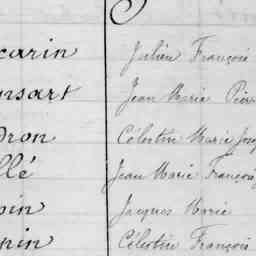 carin Julien François
nsart Jean Marie Pier
dron Célestin Marie Josep
llé Jean Marie François
pin Jacques Marie
pin Célestin François